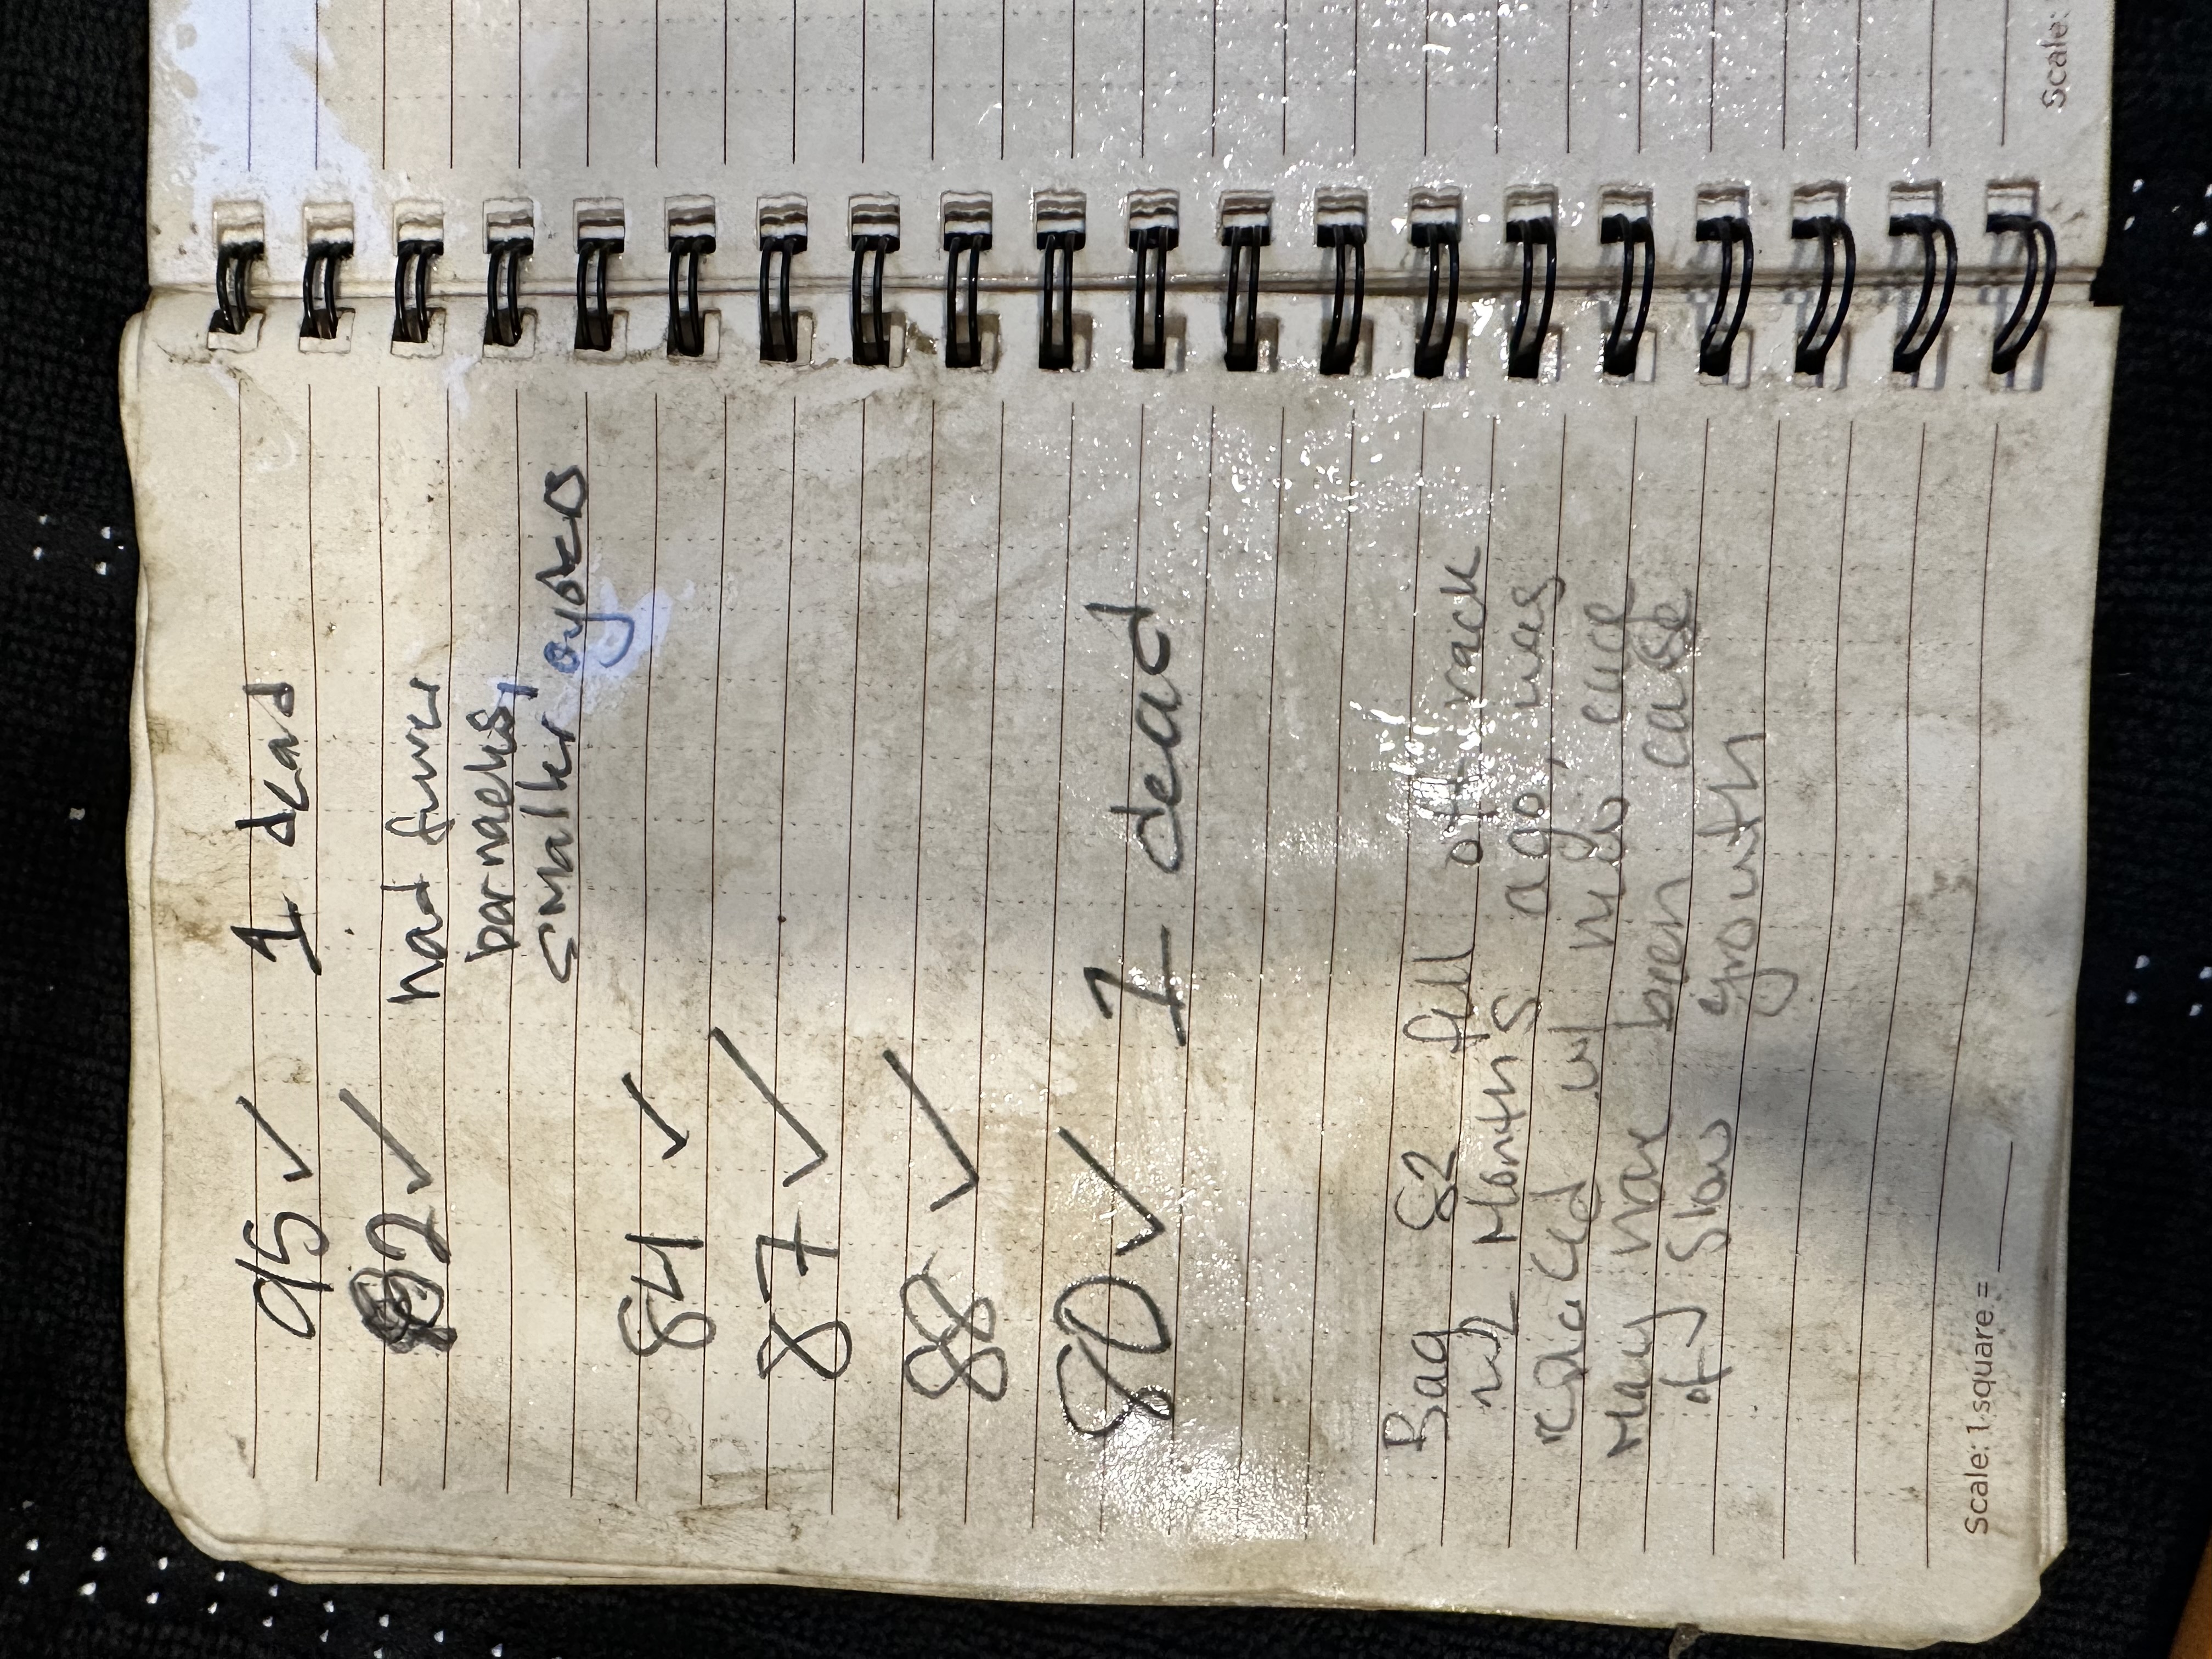 95 ✓ 1 dead
82 ✓ had fewer
barnacles,
smaller oysters
84 ✓
87 ✓
88 ✓
80 ✓ 1 dead
Bag 82 fell off rack
~2 Months ago, was
replaced w/ new cage
May have been cause
of slow growth
Scale: 1 square =
Scale: